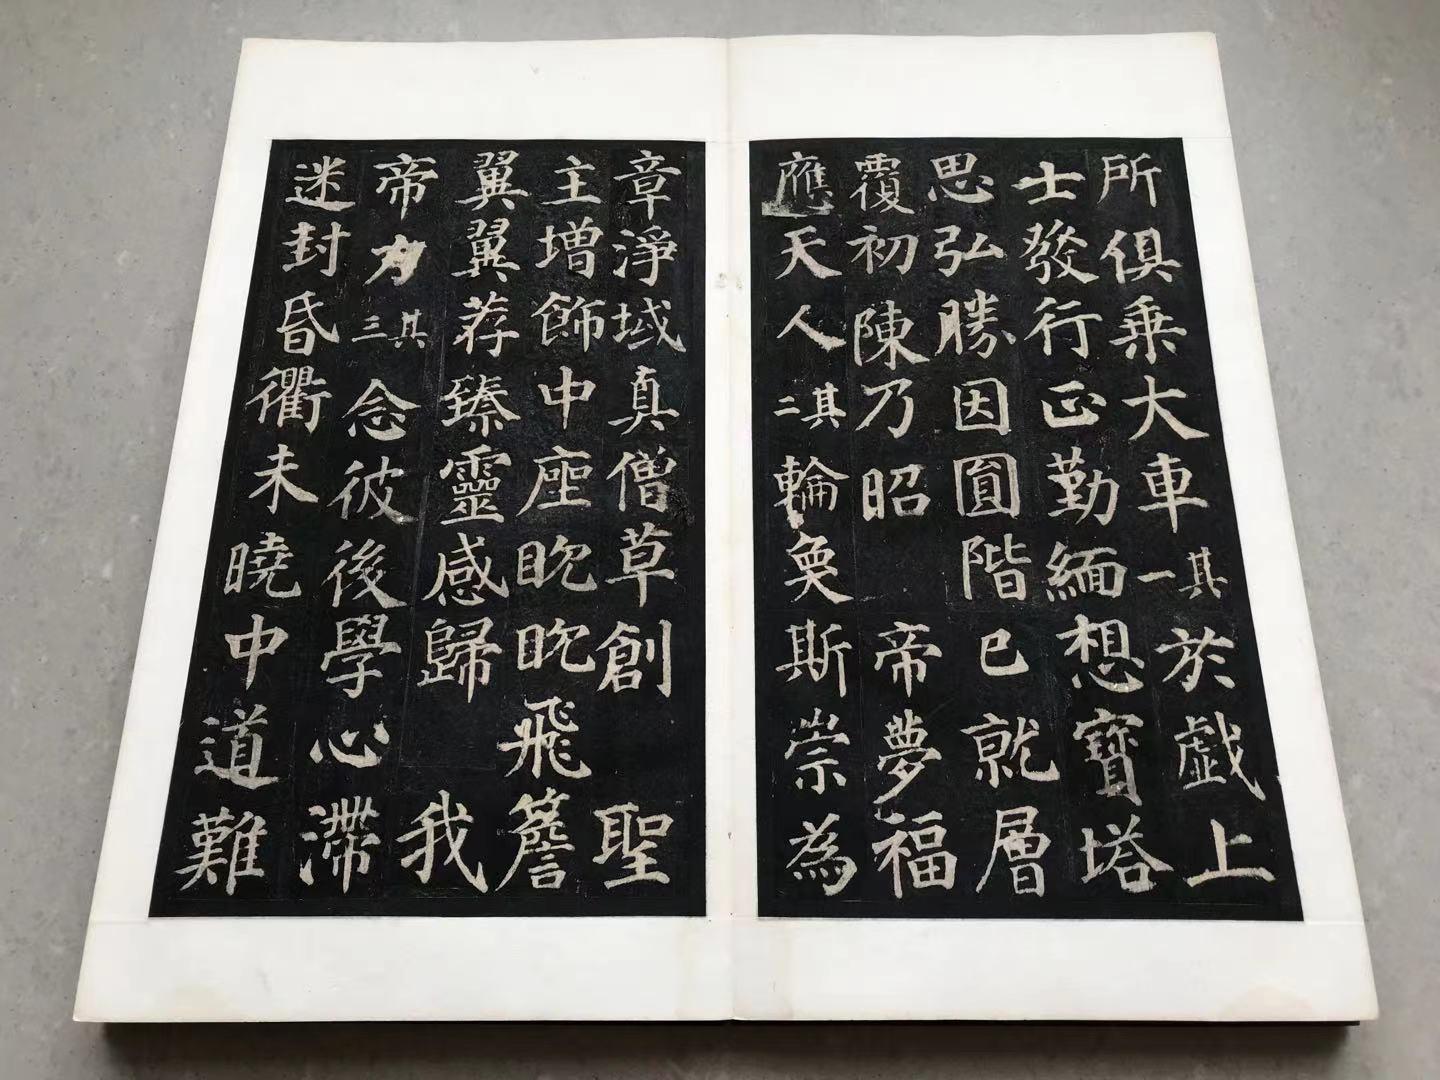 所俱乘大車其一於戲上
士發行正勤緬想寶塔
思弘勝因圎階已就層
覆初陳乃昭　帝夢福
應天人其二輪奐斯崇為
章淨域真僧草創　聖
主增飾中座眈眈飛簷
翼翼荐臻靈感歸　我
帝力其三念彼後學心滯
迷封昏衢未曉中道難